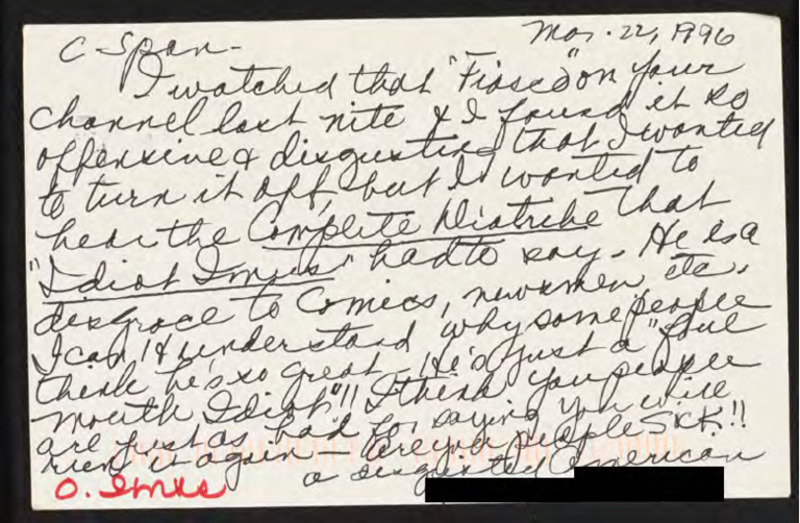 C Span -
Mar. 22, 1996
I watched that "Fiasco" on your
channel last nite & I found it so
offensive & disgusting that I wanted
to turn it off, but I wanted to
hear the Complete Diatribe that
"Idiot Imus" had to say - He is a
disgrace to Comics, newsmen, etc.
I can't understand why some people
think he's so great. He's just a "foul
mouth Idiot"!! I think you people
are just as bad for saying you will
run it again - Are you people SICK!!
a disgusted American
O. Imus